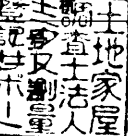 土地家屋
調査士法人
測量
登記サポート